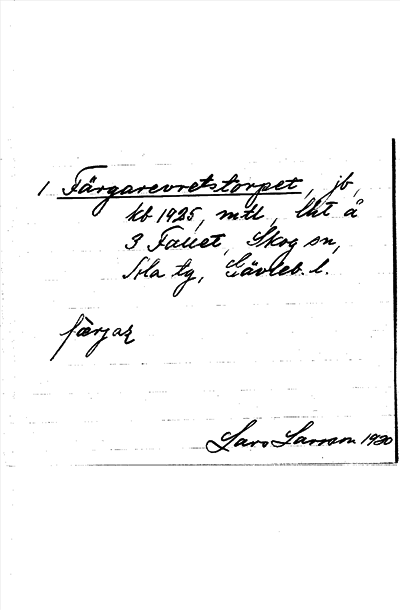 1 Färgarevretstorpet, jb,
kb 1925, mtl, lht å
3 Fallet, Skog sn,
Ala tg, Gävleb. l.
færjar
Lars Larsson 1930